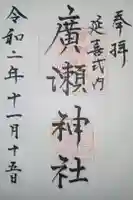 奉拝
延喜式内
廣瀬神社
令和二年十一月十五日